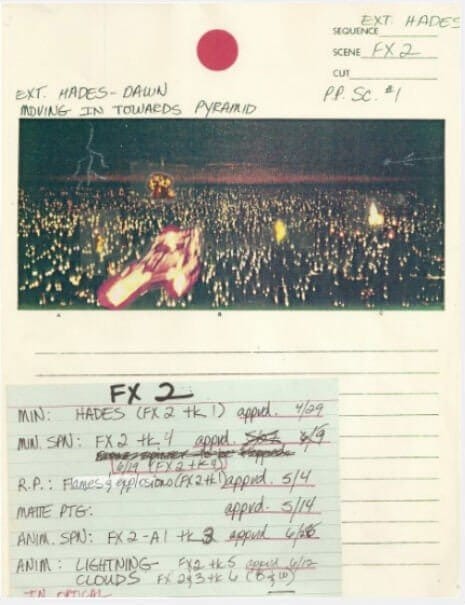 EXT. HADES
SEQUENCE
SCENE FX 2
CUT
EXT. HADES - DAWN
MOVING IN TOWARDS PYRAMID
P.P. SC. #1
A B C
FX 2
MIN: HADES (FX 2 tk 1) apprvd. 4/29
MIN. SPN: FX 2 tk. 4 apprvd. 6/9
6/19 (FX 2 tk 4)
R.P.: Flames & explosions (FX 2 tk 1) apprvd. 5/4
MATTE PTG: apprvd. 5/14
ANIM. SPN: FX 2-A1 tk 3 apprvd.
ANIM: LIGHTNING- FX 2 tk 5 apprvd 6/12
CLOUDS FX 2 & 3 tk 6
IN OPTICAL